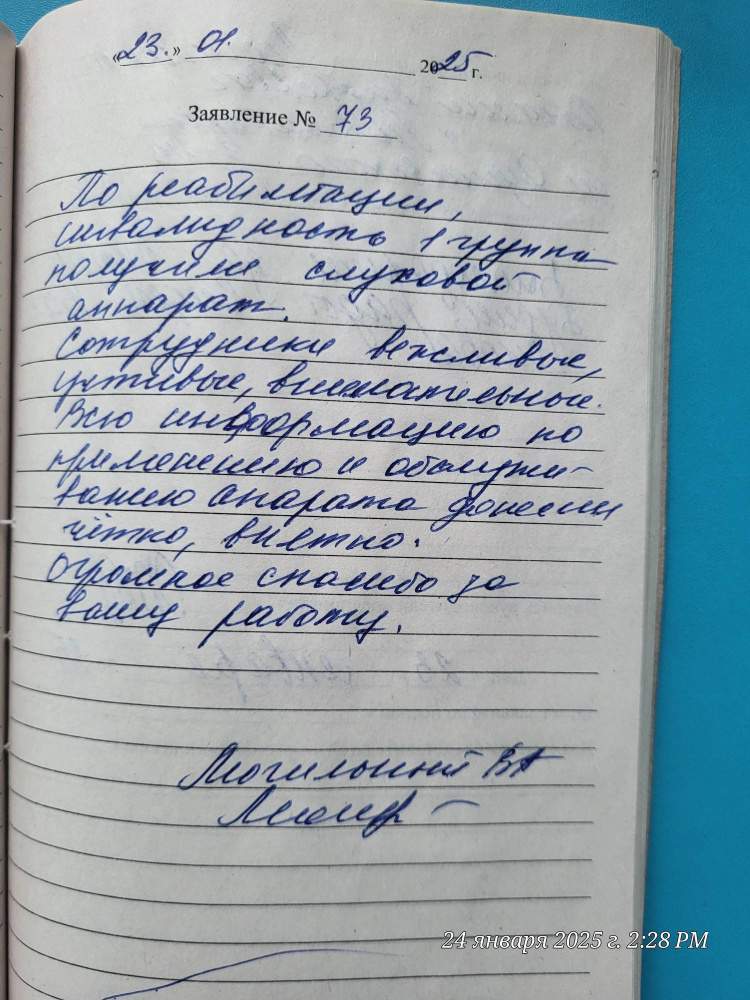 «23.» 01. 2025 г.
Заявление № 73
По реабилитации,
инвалидность 1 группа
получили слуховой
аппарат.
Сотрудники вежливые,
учтивые, внимательные.
Всю информацию по
применению и обслужи-
ванию аппарата донесли
чётко, внятно.
Огромное спасибо за
вашу работу.
Могильный ВА
24 января 2025 г. 2:28 PM